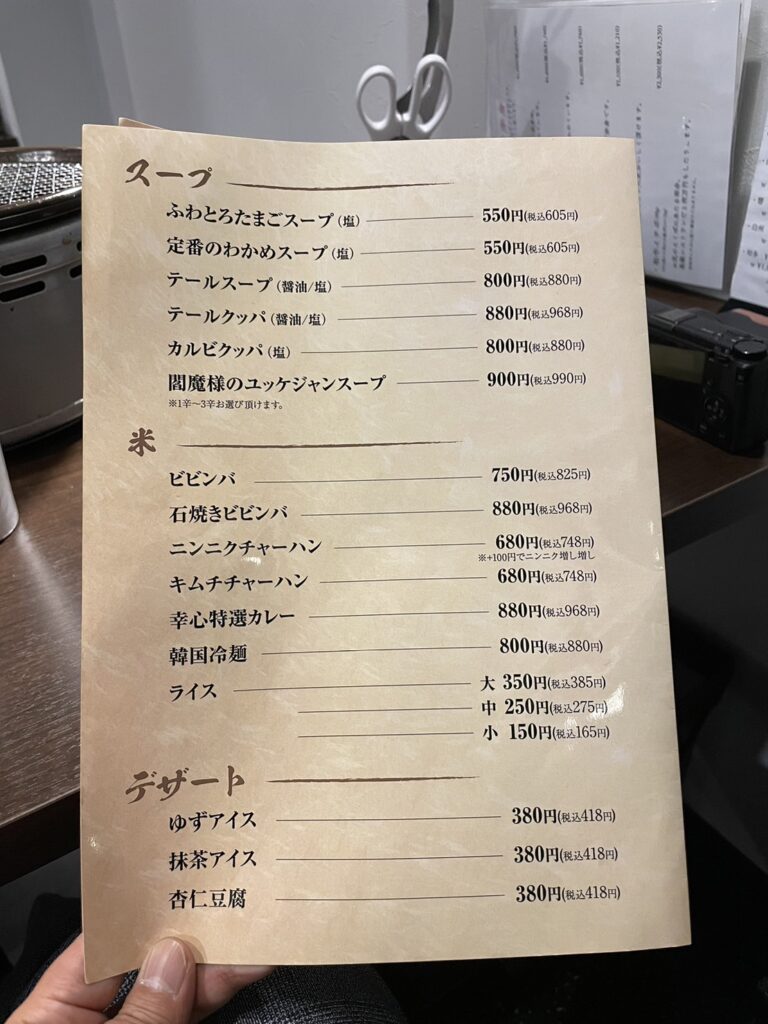 スープ
ふわとろたまごスープ(塩) 550円(税込605円)
定番のわかめスープ(塩) 550円(税込605円)
テールスープ(醤油/塩) 800円(税込880円)
テールクッパ(醤油/塩) 880円(税込968円)
カルビクッパ(塩) 800円(税込880円)
閻魔様のユッケジャンスープ 900円(税込990円)
※1辛〜3辛お選び頂けます。
米
ビビンバ 750円(税込825円)
石焼きビビンバ 880円(税込968円)
ニンニクチャーハン 680円(税込748円)
※+100円でニンニク増し増し
キムチチャーハン 680円(税込748円)
幸心特選カレー 880円(税込968円)
韓国冷麺 800円(税込880円)
ライス 大 350円(税込385円)
中 250円(税込275円)
小 150円(税込165円)
デザート
ゆずアイス 380円(税込418円)
抹茶アイス 380円(税込418円)
杏仁豆腐 380円(税込418円)